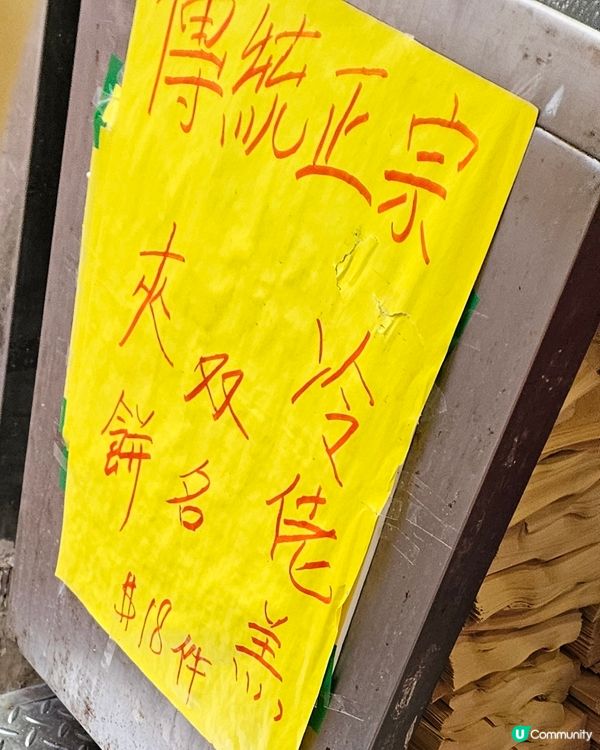 傳統正宗
冷佬羔
双名
夾餅
$18件
U Community